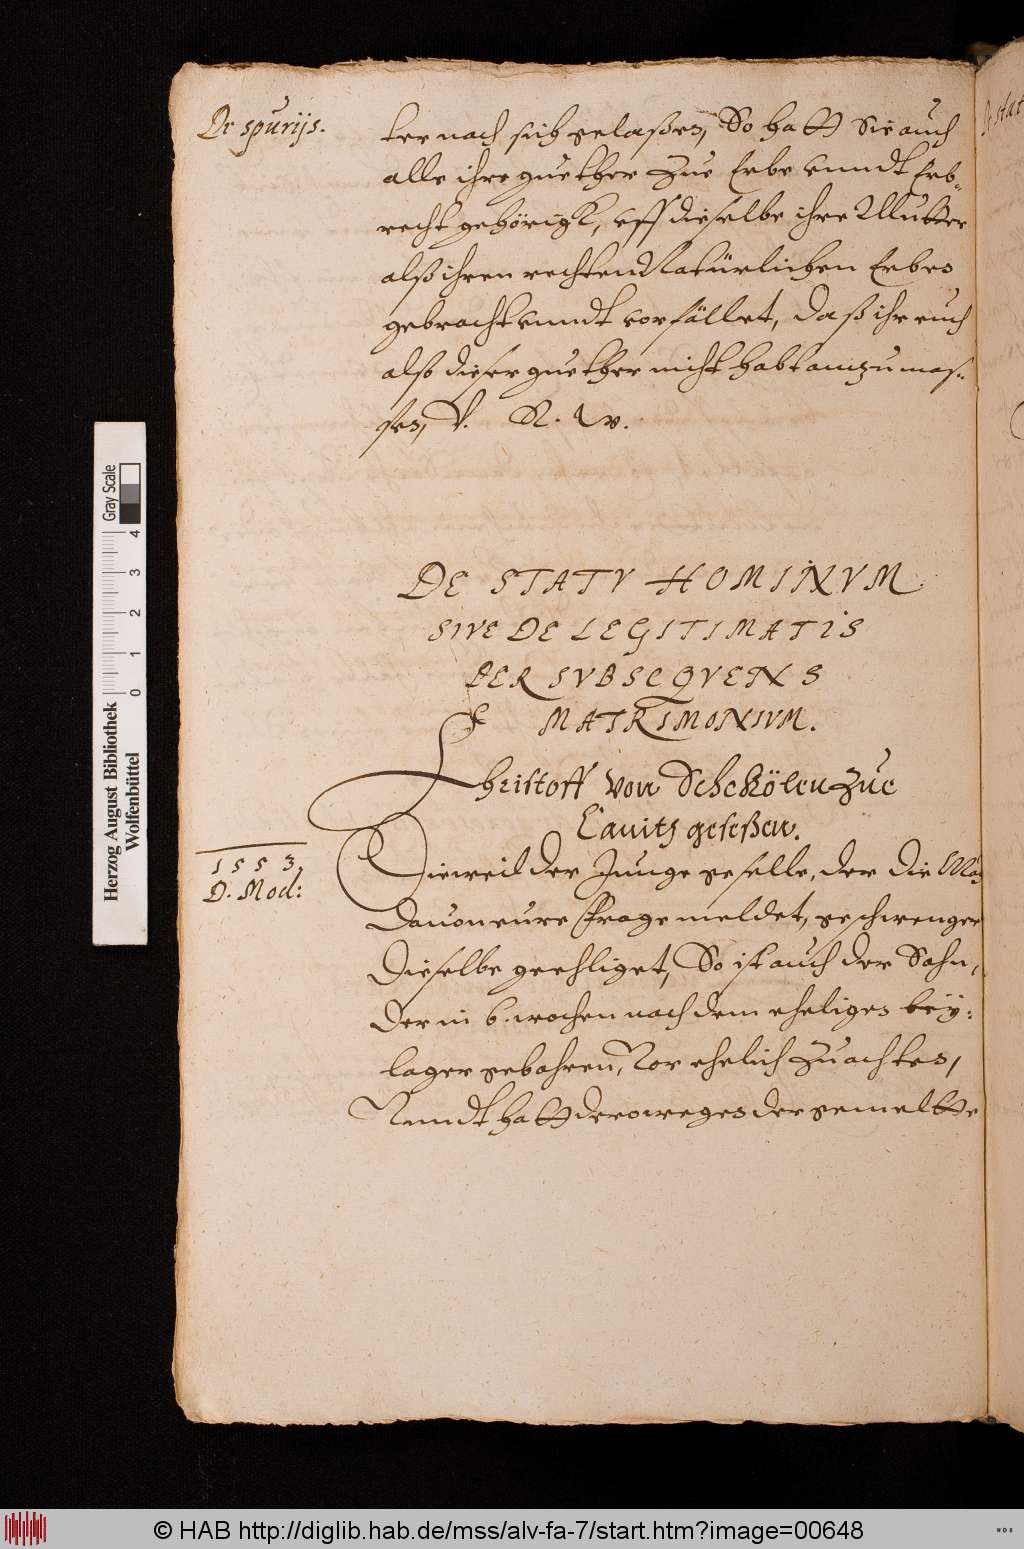 De spurijs.
ter nach sich gelaßen, So hatt Sie auch
alle ihre guether zue Erbe vnndt Erb-
recht gehörigk, vff dieselbe ihre Mutter
alß ihren rechten Natürlichen Erben
gebracht vnndt vorfället, Daß ihr euch
also dieser guether nicht habt anzumas-
sen, V. R. W.
DE STATV HOMINVM
SIVE DE LEGITIMATIS
PER SVBSEQVENS
MATRIMONIVM.
Christoff von Schekölen zue
Cauitz geseßen.
1553.
D. Mod:
Dieweil der Junge geselle, der die
Dauon eure Frage meldet, geschwenget
Dieselbe geehliget, So ist auch der Sohn,
Der in 6. wochen nach dem ehelichen bey-
lager gebohren, Vor ehelich zu achten,
Vnndt hatt derowegen der gemeltte
Gray Scale
0 1 2 3 4
Herzog August Bibliothek
Wolfenbüttel
© HAB http://diglib.hab.de/mss/alv-fa-7/start.htm?image=00648